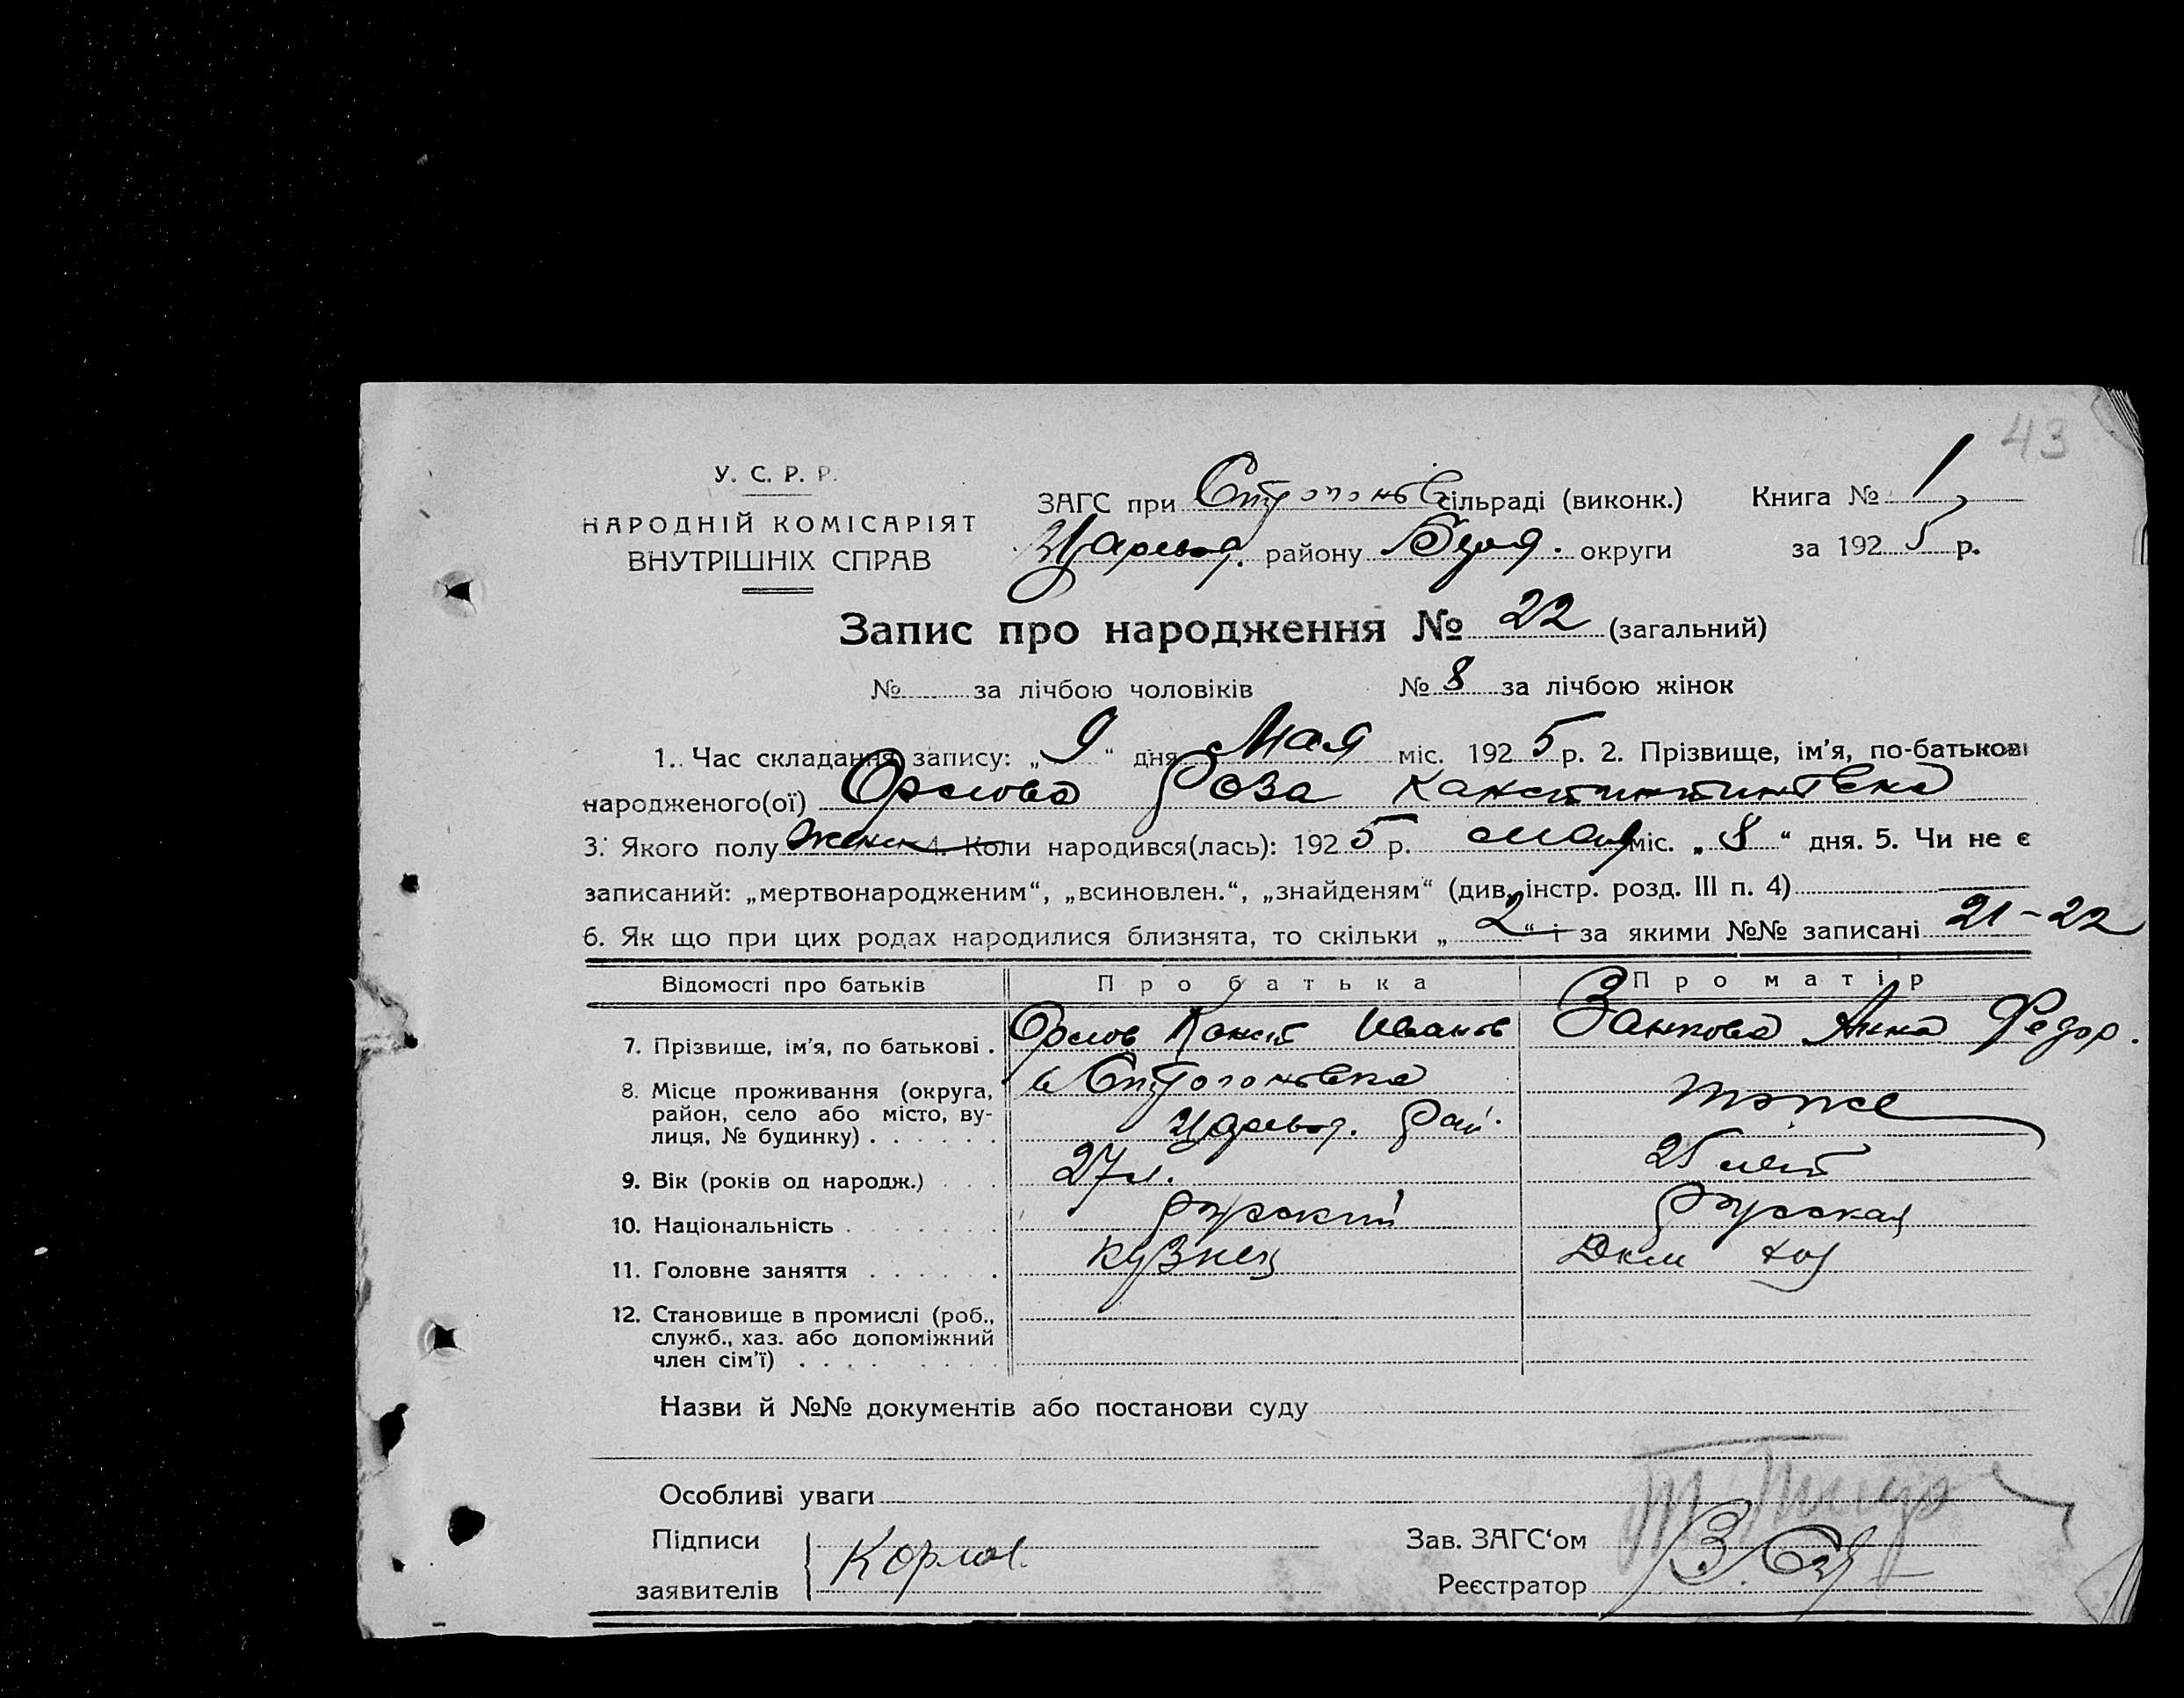 43
У. С. Р. Р.
НАРОДНІЙ КОМІСАРІЯТ
ВНУТРІШНІХ СПРАВ
ЗАГС при Строгонів сільраді (виконк.) Книга № 1
району округи за 1925 р.
Запис про народження № 22 (загальний)
№ за лічбою чоловіків № 8 за лічбою жінок
1. Час складання запису: „9“ дня Мая міс. 1925 р. 2. Прізвище, ім'я, по-батькові
народженого(ої) Орлова Роза
3. Якого полу жен 4. Коли народився(лась): 1925 р. мая міс. „8“ дня. 5. Чи не є
записаний: „мертвонародженим“, „всиновлен.“, „знайденям“ (див. інстр. розд. III п. 4)
6. Як що при цих родах народилися близнята, то скільки „2“ і за якими №№ записані 21-22
Відомості про батьків Про батька Про матір
7. Прізвище, ім'я, по батькові . Орлов Конст Иванов Занкова Анна Федор.
8. Місце проживання (округа, район, село або місто, вулиця, № будинку) . . . . . . Строгоновка рай. тоже
9. Вік (років од народж.) . . . 27 л. 25 лет
10. Національність . . . . . . . русский русская
11. Головне заняття . . . . . . кузнец
12. Становище в промислі (роб., служб., хаз. або допоміжний член сім'ї) . . . . . . . .
Назви й №№ документів або постанови суду
Особливі уваги
Підписи заявителів
Зав. ЗАГС'ом
Реєстратор